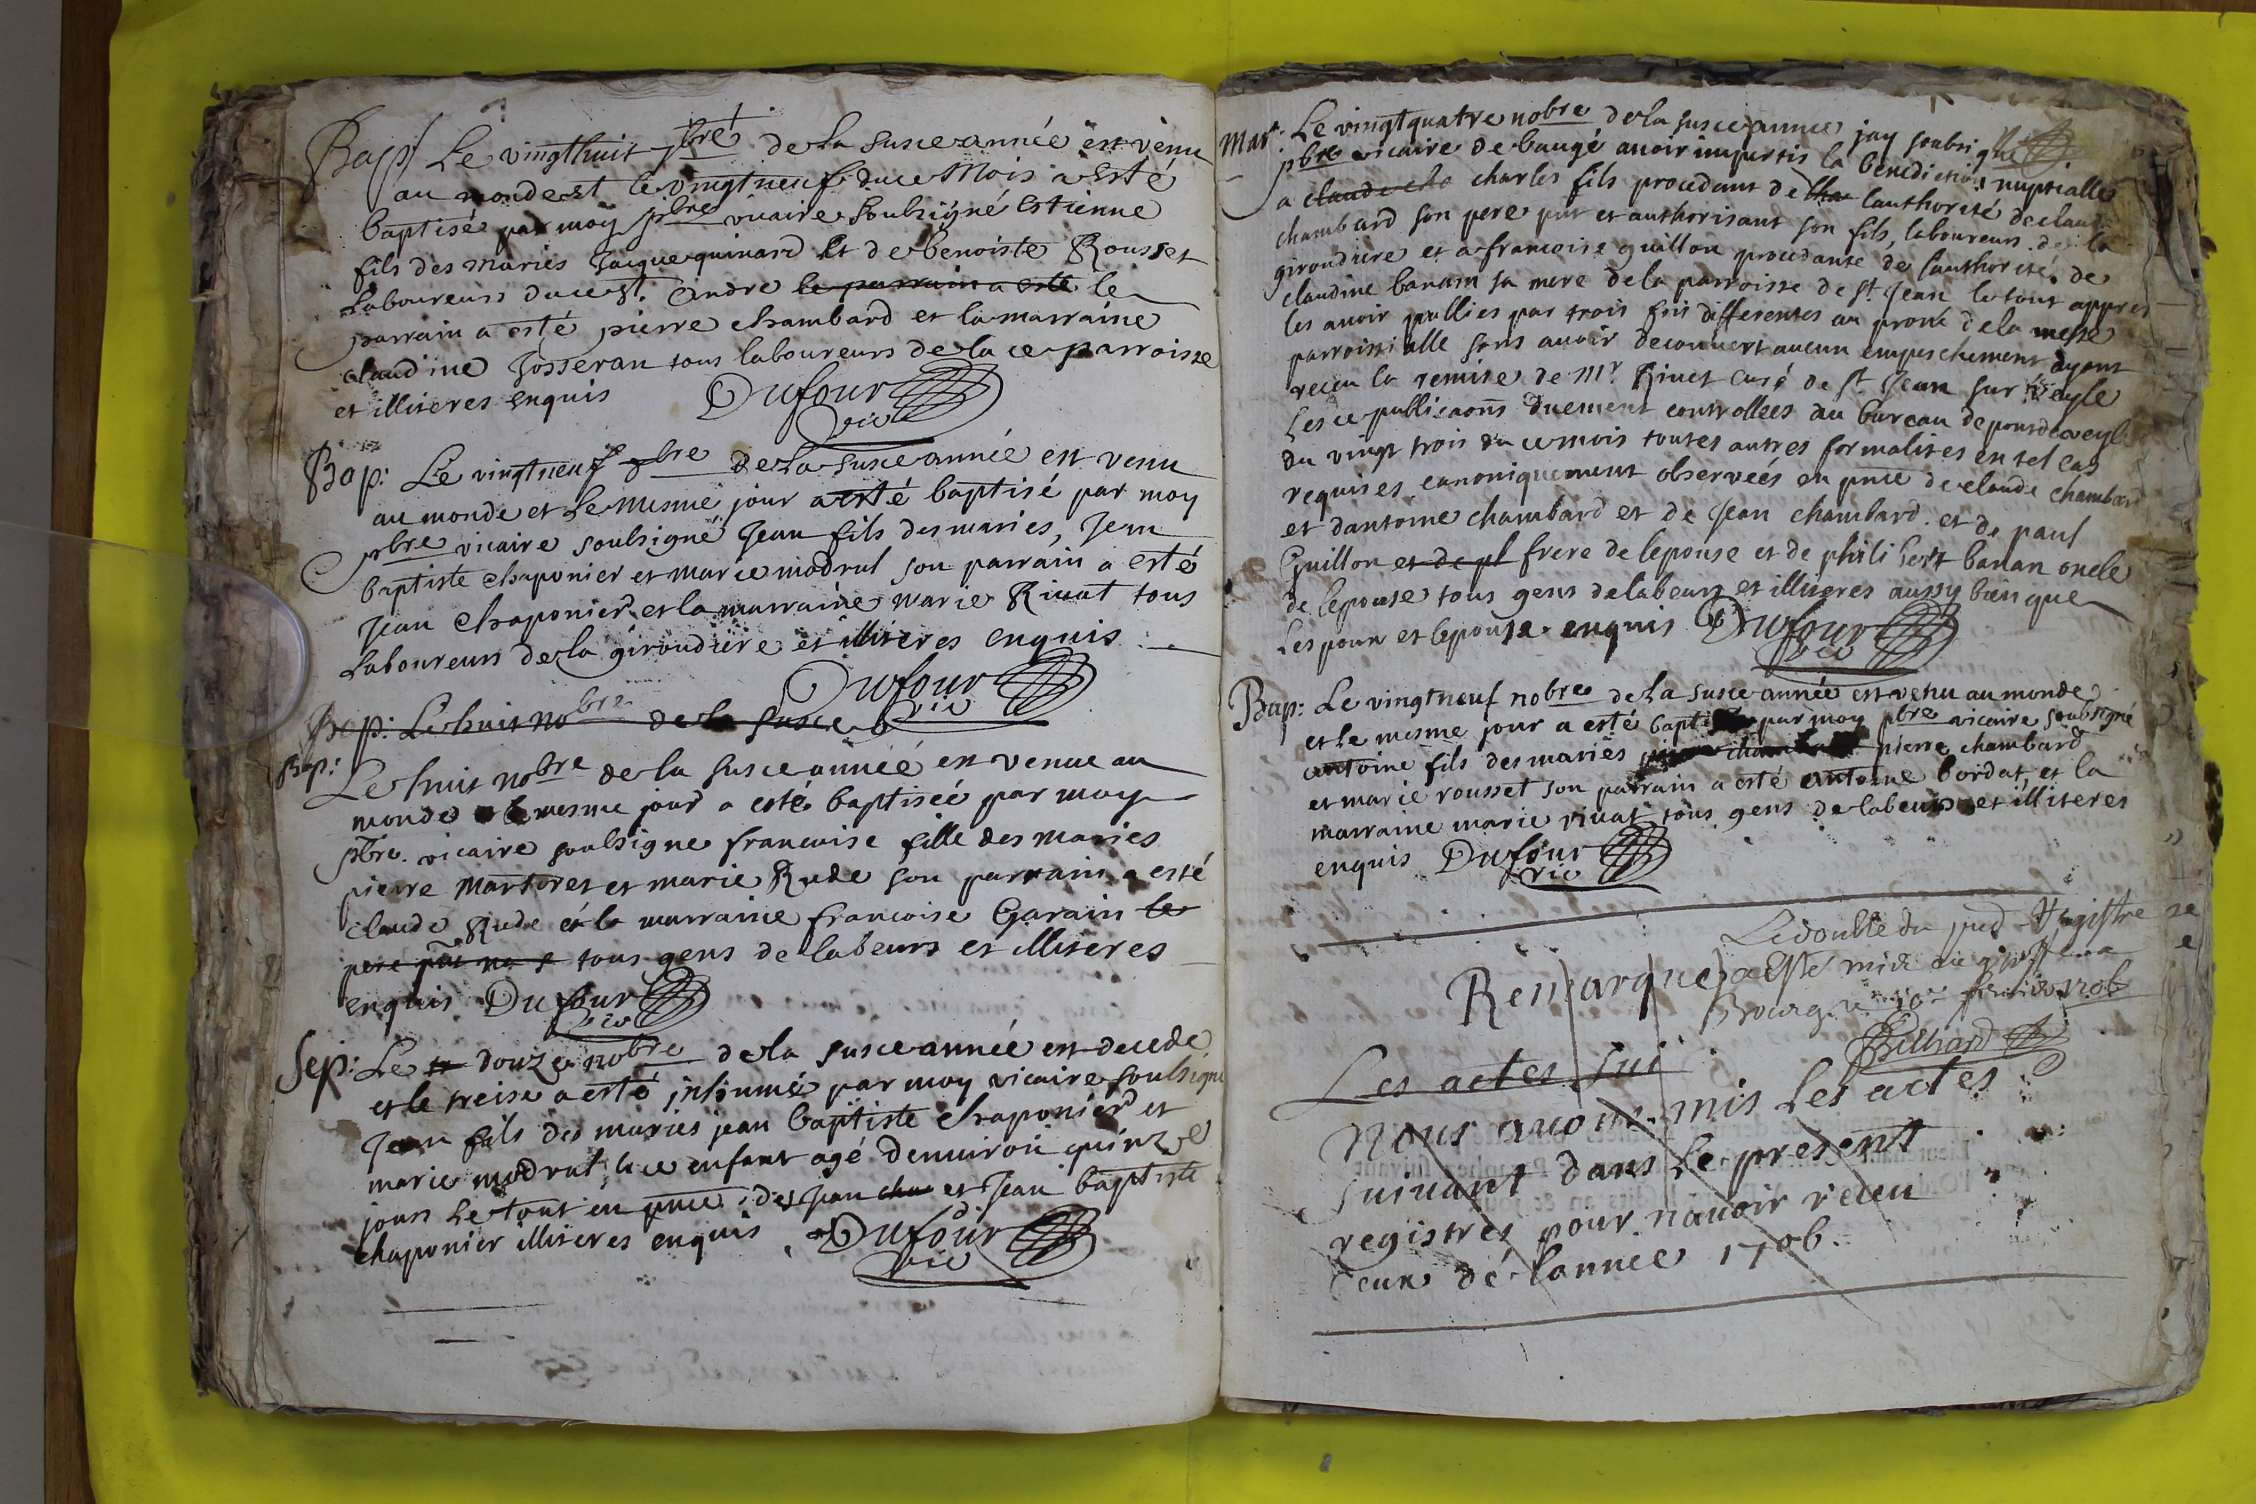 Bap: Le vingthuit 7bre de la susce année est venu
au monde et le vingtneuf duce Mois a esté
baptisé par moy pbre vicaire soubsigné Estienne
fils des mariés Jacque quinard et de benoiste Rousset
Laboureurs ducest. Andre le parrain a esté le
parrain a esté pierre chambard et la marraine
claudine Josseran tous laboureurs de la ce parroisse
et illiteres enquis Dufour
vic
Bap: Le vingtneuf 8bre de la susce année est venu
au monde et le mesme jour a esté baptisé par moy
pbre vicaire soubsigné Jean fils des maries, Jean
baptiste chaponier et marie modrut son parrain a esté
Jean chaponier et la marraine marie Rivat tous
Laboureurs de la girondiere et illiteres enquis
Dufour
vic
Bap: Le huit nobre de la susce
Bap: Le huit nobre de la susce année est venue au
monde et le mesme jour a esté baptiseé par moy
pbre vicaire soubsigne francoise fille des maries
pierre Martoret et marie Rude son parrain a esté
claude Rude et la marraine francoise Garain le
pere tous gens de labeurs et illiteres
enquis Dufour
vic
Sep: Le douze nobre de la susce année est decede
et le treise a esté inhumé par moy vicaire soubsigné
Jean fils des maries jean baptiste chaponier et
marie modrut, le ce enfant agé denuiron quinze
jours Le tout en pnce des Jean cha et Jean baptiste
chaponier illiteres enquis Dufour
vic
Mar: Le vingtquatre nobre de la susce annee jay soubsigné
pbre vicaire de baugé avoir impartis la benediction nuptialle
a claude cha charles fils procedant de cha lauthorité de claude
chambard son pere pnt et authorisant son fils, laboureurs de la
girondiere et a francoise guillon procedante de lauthorité de
claudine banan sa mere de la parroisse de st Jean le tout appres
les avoir publies par trois fois differentes au prone de la messe
parroissialle sans avoir decouvert aucun empeschement ayant
receu la remise de Mr Rivet curé de st Jean sur Veyle
Lesce publicaons duement controllees au bureau de pontdeveyle
du vingt trois du ce mois toutes autres formalites en tel cas
requises canoniquement observeés en pnce de claude chambard
et dantoine chambard et de Jean chambard et de paul
Guillon et de pl frere de lepouse et de philibert banan oncle
de lepouse tous gens de labeurs et illiteres aussy bien que
Lespoux et lepouse enquis Dufour
vic
Bap: Le vingtneuf nobre de la susce année est venu au monde
et le mesme jour a esté baptisé par moy pbre vicaire soubsigné
antoine fils des mariés pierre chambard
et marie rousset son parrain a esté antoine bordat, et la
marraine marie rivat tous gens de labeurs et illiteres
enquis Dufour
vic
Le double du pnt Registre
a Esté mis au greffe a
Bourg 1706
Billiard
Remarque
Les actes sui
Nous avons mis les actes
suivant dans le present
registres pour navoir receu
ceux de lannée 1706.